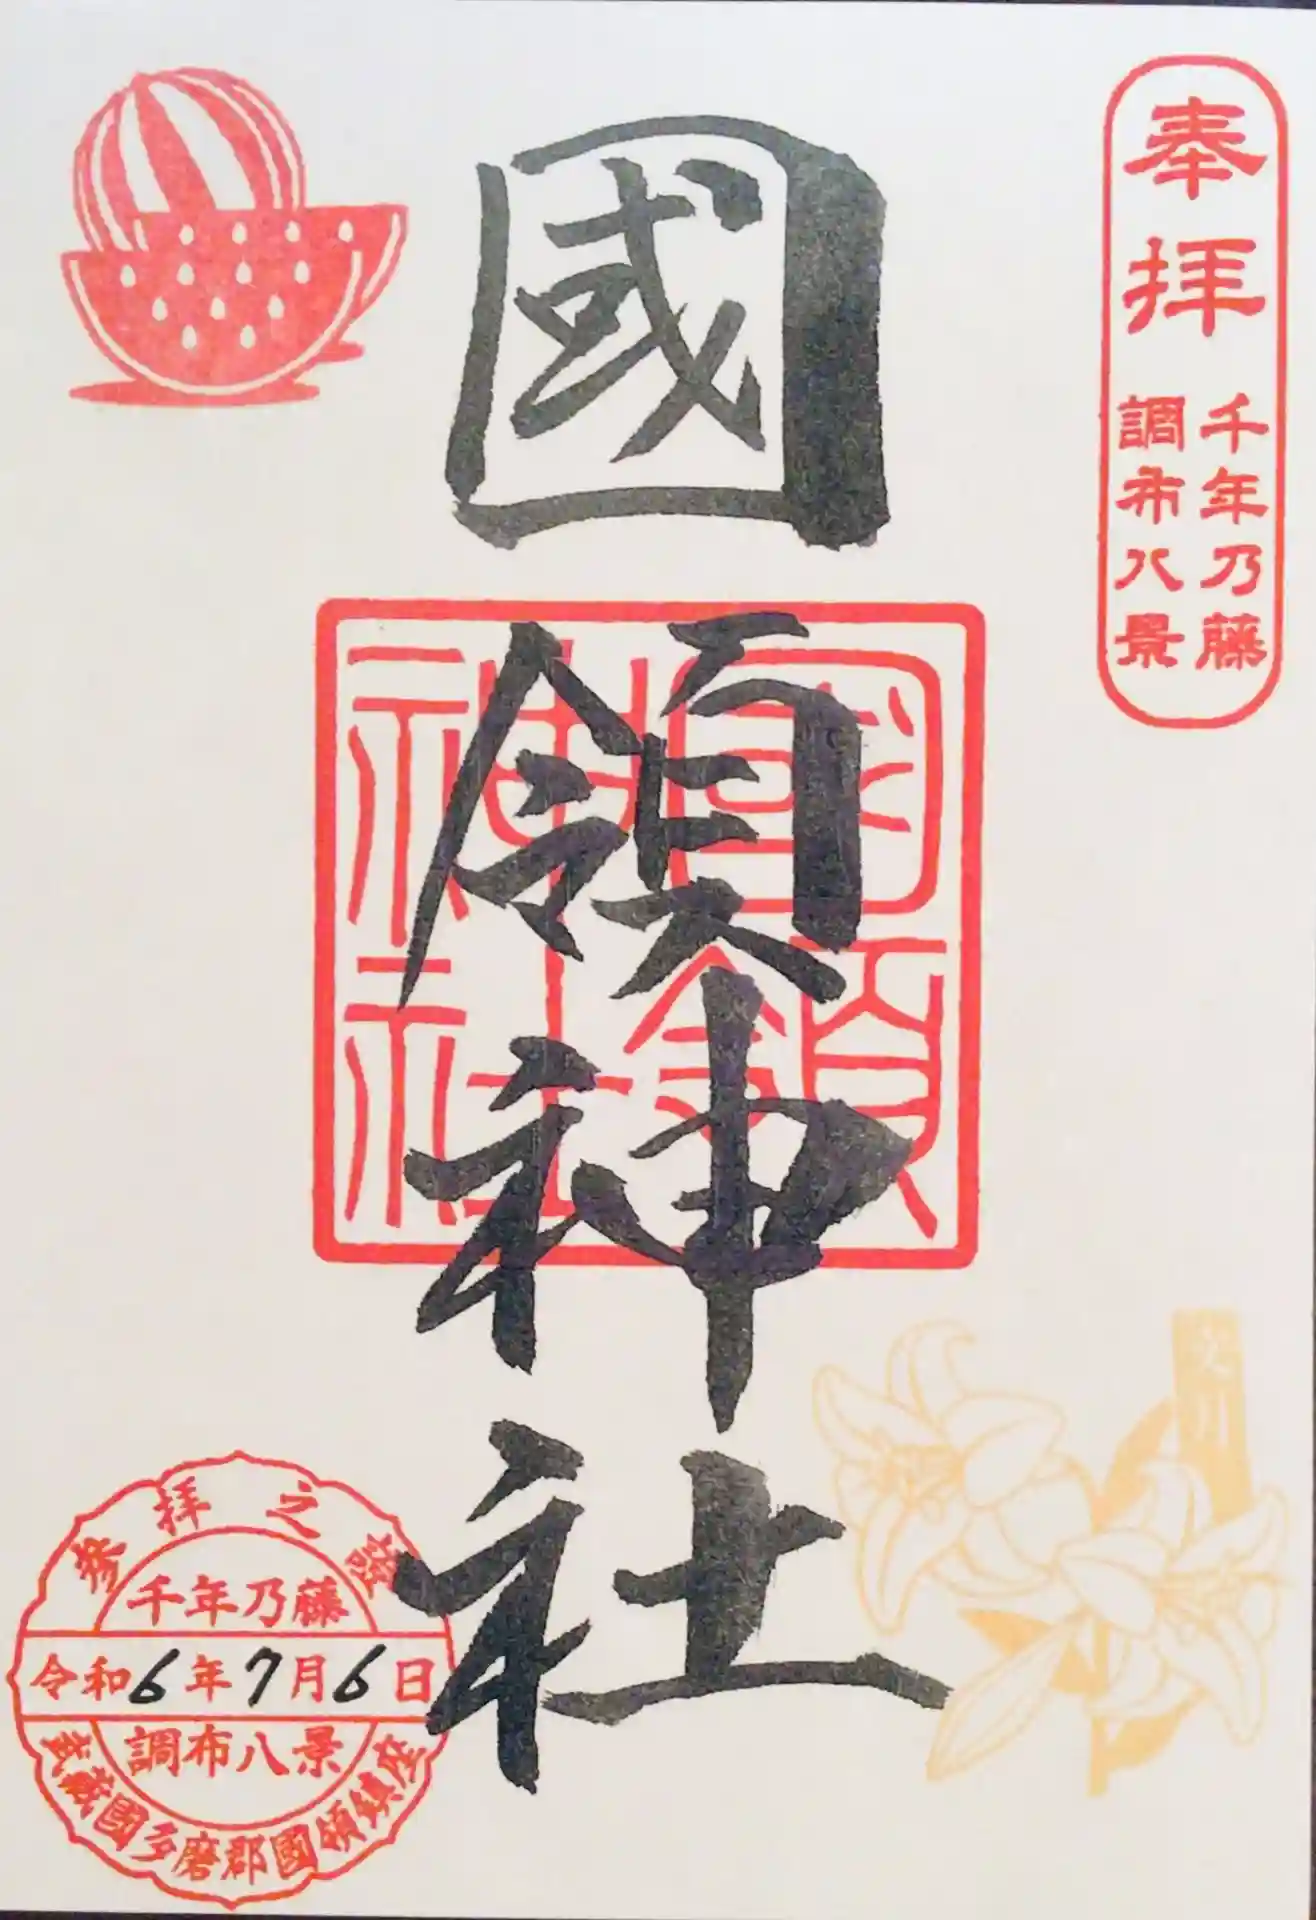 奉拝
千年乃藤
調布八景
國領神社
國領
神社
文月
参拝之證
千年乃藤
令和6年7月6日
調布八景
武蔵國多磨郡國領鎮座